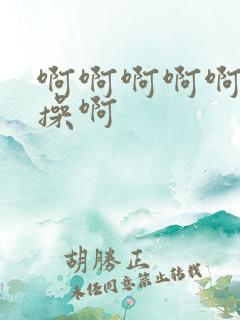 啊啊啊啊啊
操啊
胡勝正
未经同意禁止转载